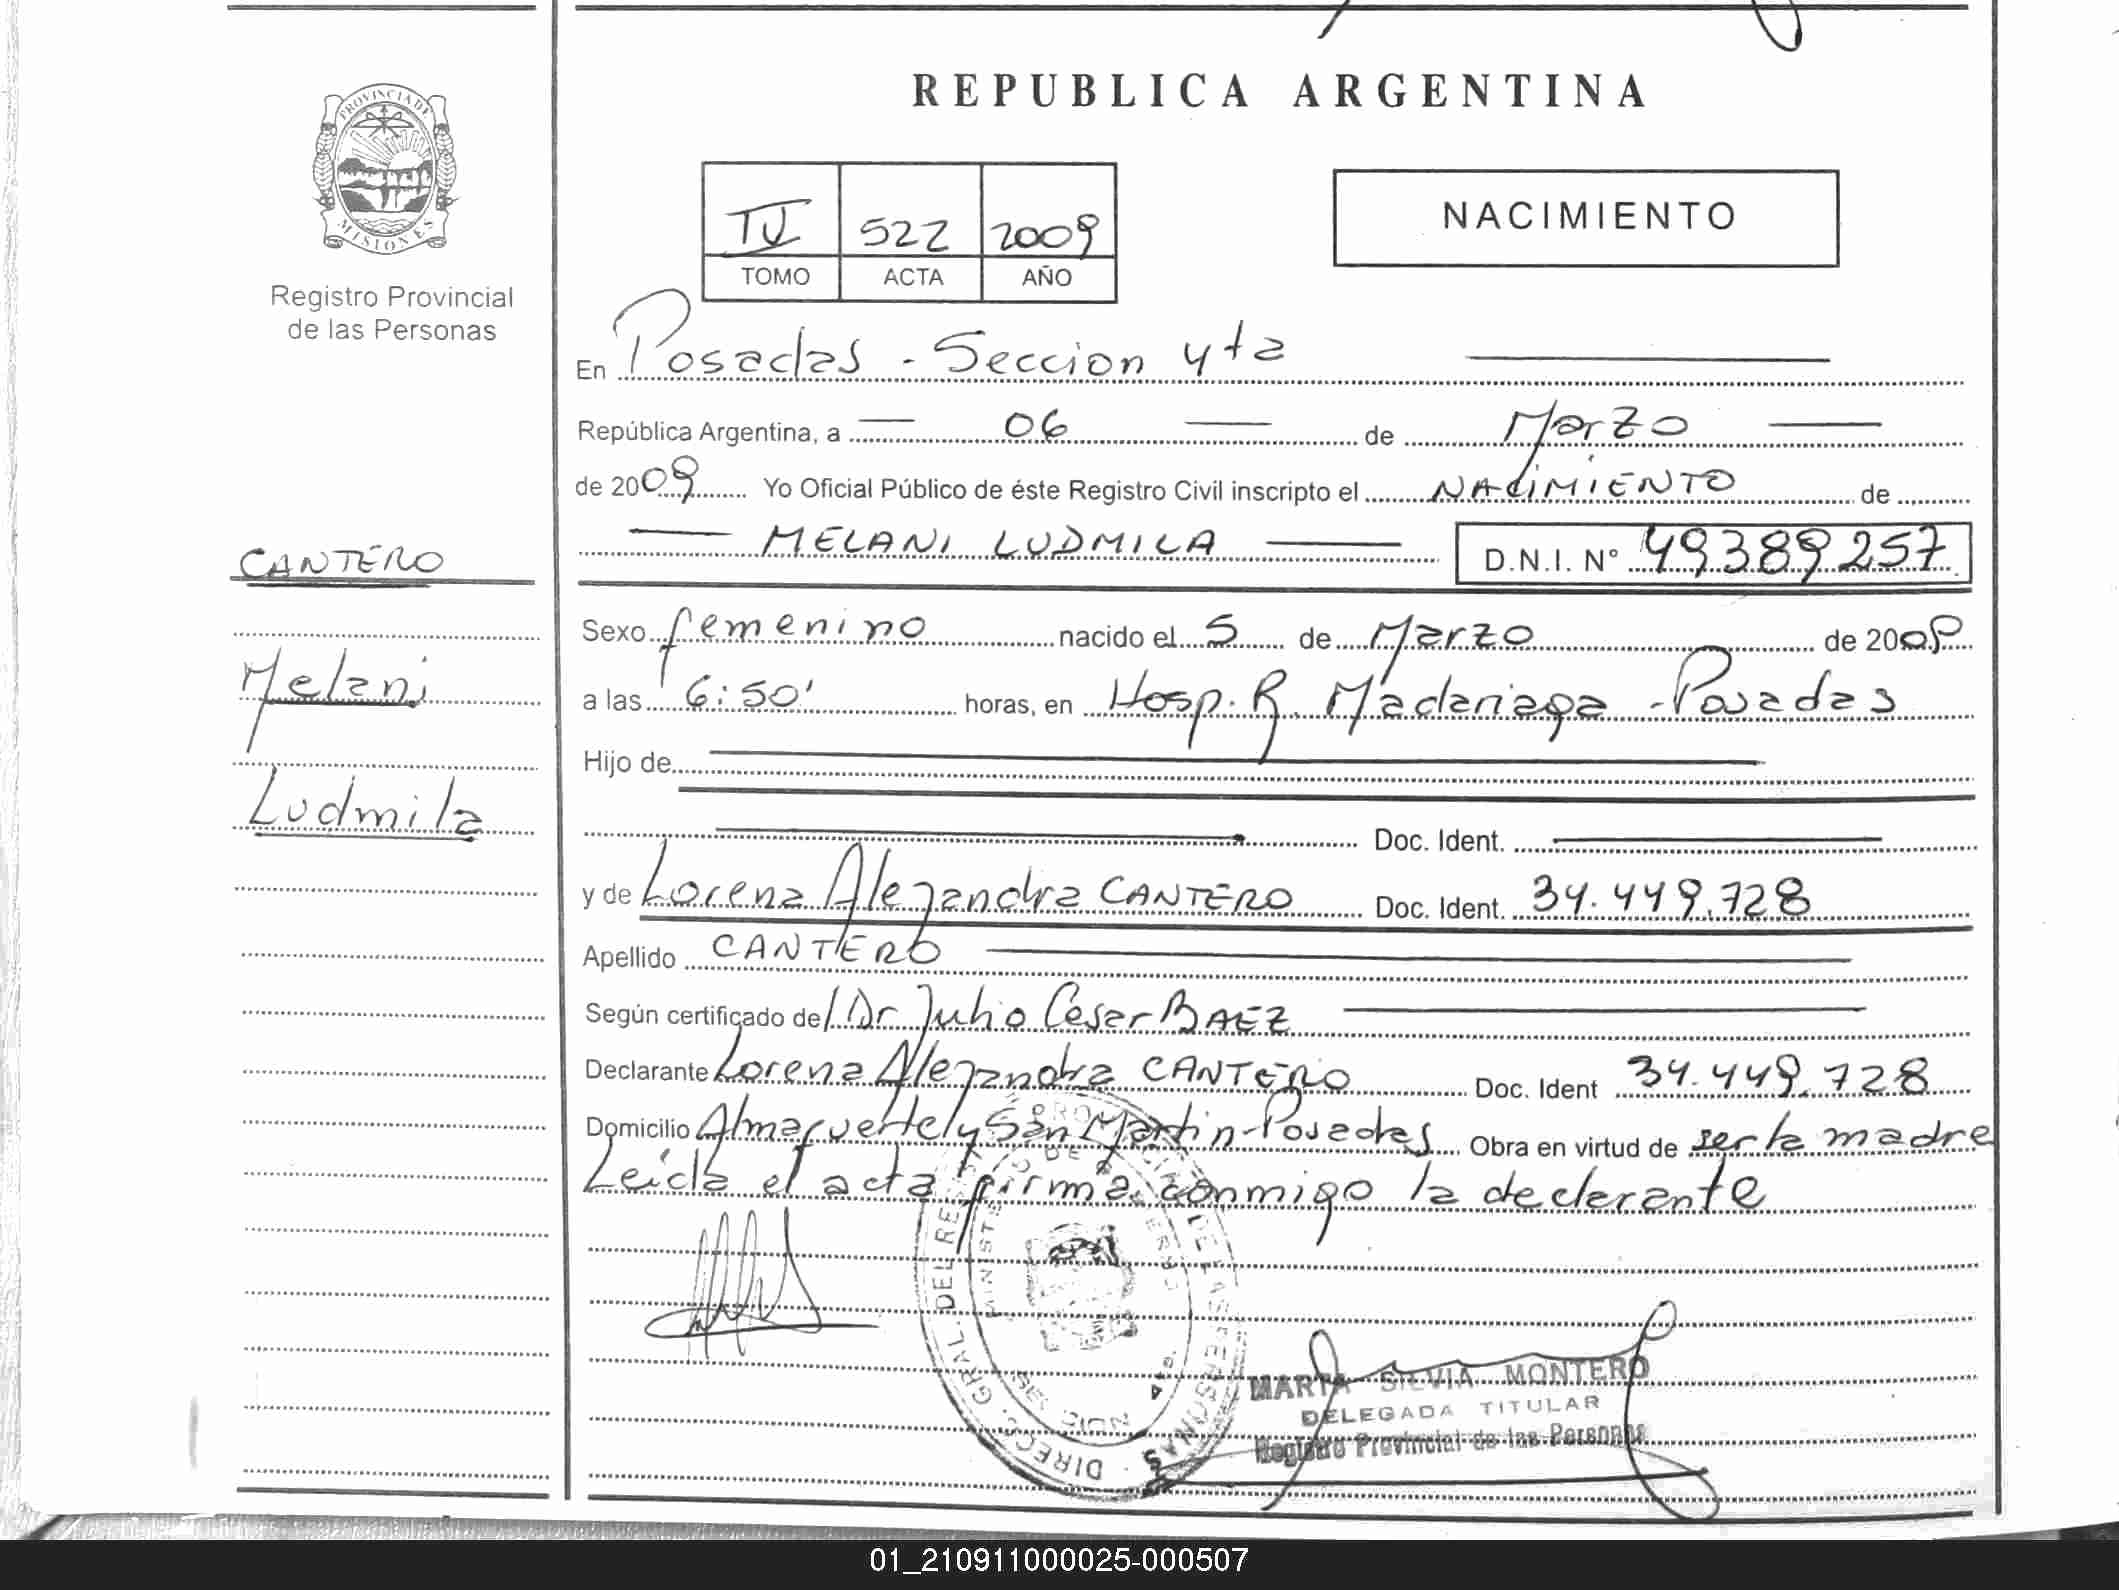 REPUBLICA ARGENTINA
PROVINCIA DE MISIONES
Registro Provincial
de las Personas
IV 522 2009
TOMO ACTA AÑO
NACIMIENTO
En Posadas - Seccion 4ta
República Argentina, a 06 de Marzo
de 2009 Yo Oficial Público de éste Registro Civil inscripto el NACIMIENTO de
MELANI LUDMILA D.N.I. Nº 49389257
CANTERO
Melani
Ludmila
Sexo femenino nacido el 5 de Marzo de 2009
a las 6:50' horas, en Hosp. R. Madariaga - Posadas
Hijo de
Doc. Ident.
y de Lorena Alejandra CANTERO Doc. Ident. 34.449.728
Apellido CANTERO
Según certificado del Dr Julio Cesar BAEZ
Declarante Lorena Alejandra CANTERO Doc. Ident 34.449.728
Domicilio Almafuerte y San Martin - Posadas Obra en virtud de ser la madre
Leida el acta firma conmigo la declarante
DIREC. GRAL. DEL REG. PROVINCIAL DE LAS PERSONAS
MINISTERIO DE GOBIERNO
MARTA SILVIA MONTERO
DELEGADA TITULAR
Registro Provincial de las Personas
01_210911000025-000507